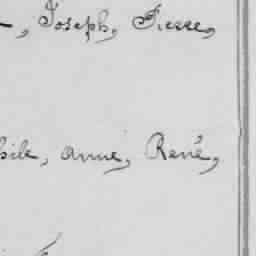 , Joseph, Pierre,
hile, anne, René,